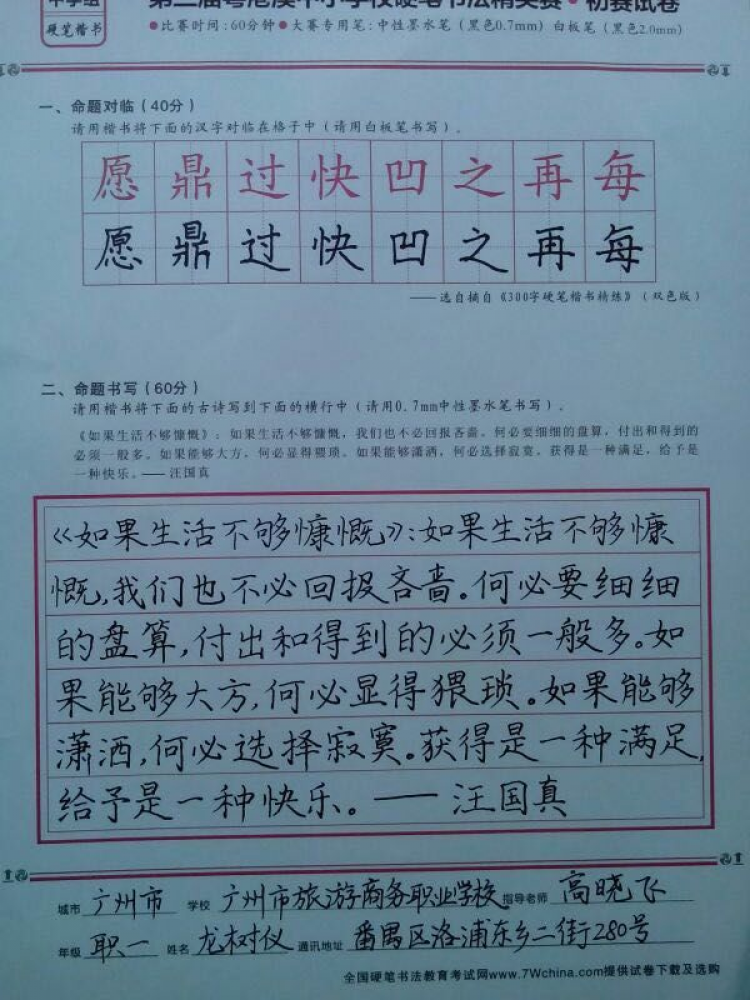 中学组
硬笔楷书
第三届粤港澳中小学校硬笔书法精英赛·初赛试卷
●比赛时间:60分钟●大赛专用笔:中性墨水笔(黑色0.7mm)白板笔(黑色2.0mm)
一、命题对临(40分)
请用楷书将下面的汉字对临在格子中(请用白板笔书写)。
愿鼎过快凹之再每
愿鼎过快凹之再每
——选自摘自《300字硬笔楷书精练》(双色版)
二、命题书写(60分)
请用楷书将下面的古诗写到下面的横行中(请用0.7mm中性墨水笔书写)。
《如果生活不够慷慨》:如果生活不够慷慨,我们也不必回报吝啬。何必要细细的盘算,付出和得到的
必须一般多。如果能够大方,何必显得猥琐。如果能够潇洒,何必选择寂寞。获得是一种满足,给予是
一种快乐。——汪国真
《如果生活不够慷慨》:如果生活不够慷
慨,我们也不必回报吝啬。何必要细细
的盘算,付出和得到的必须一般多。如
果能够大方,何必显得猥琐。如果能够
潇洒,何必选择寂寞。获得是一种满足,
给予是一种快乐。——汪国真
城市 广州市 学校 广州市旅游商务职业学校 指导老师 高晓飞
年级 职一 姓名 龙树仪 通讯地址 番禺区洛浦东乡二街280号
全国硬笔书法教育考试网www.7Wchina.com提供试卷下载及选购